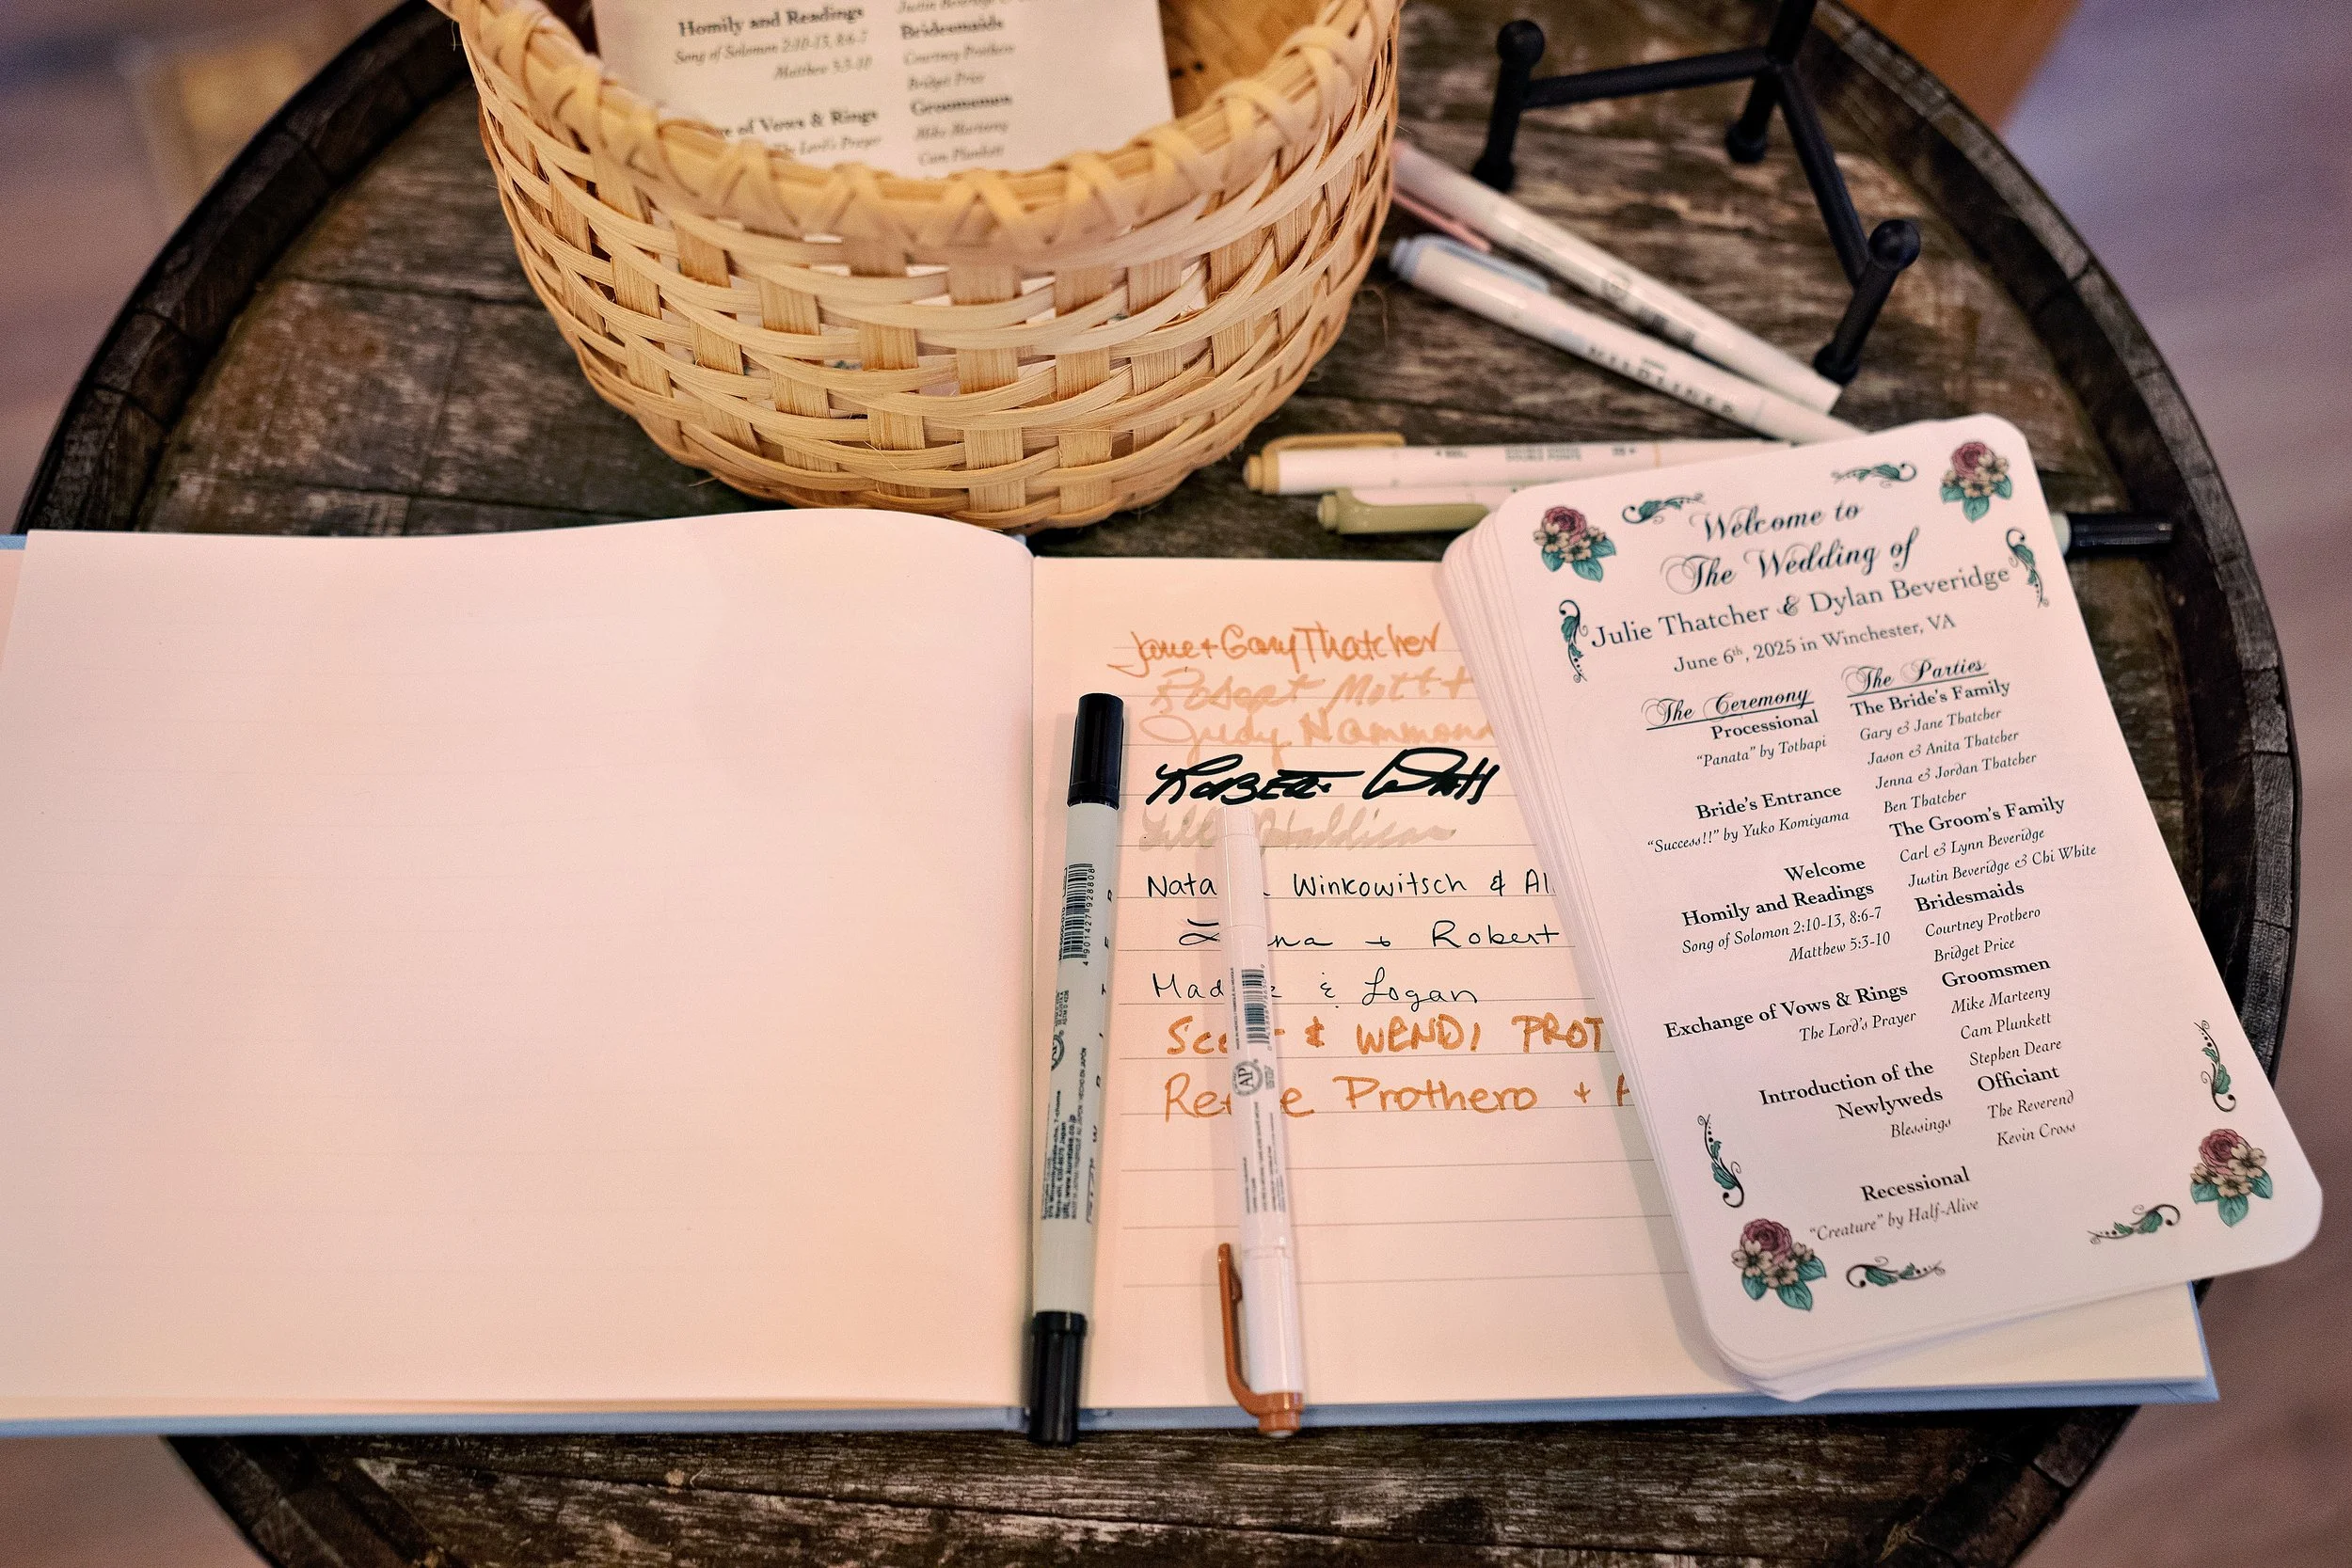 Homily and Readings
Song of Solomon 2:10-13, 8:6-7
Matthew 5:3-10
of Vows & Rings
The Lord's Prayer
Bridesmaids
Courtney Prothero
Bridget Price
Groomsmen
Mike Marteeny
Cam Plunkett
MILDLINER
Jane + Gary Thatcher
Robert Mott +
Judy Hammond
Winkowitsch & Al
Robert
& Logan
& WENDI PROT
Prothero +
4 901427 928808
AP
AP
Welcome to
The Wedding of
Julie Thatcher & Dylan Beveridge
June 6th, 2025 in Winchester, VA
The Ceremony
Processional
"Panata" by Tothapi
Bride's Entrance
"Success!!" by Yuko Komiyama
Welcome
Homily and Readings
Song of Solomon 2:10-13, 8:6-7
Matthew 5:3-10
Exchange of Vows & Rings
The Lord's Prayer
Introduction of the
Newlyweds
Blessings
Recessional
"Creature" by Half-Alive
The Parties
The Bride's Family
Gary & Jane Thatcher
Jason & Anita Thatcher
Jenna & Jordan Thatcher
Ben Thatcher
The Groom's Family
Carl & Lynn Beveridge
Justin Beveridge & Chi White
Bridesmaids
Courtney Prothero
Bridget Price
Groomsmen
Mike Marteeny
Cam Plunkett
Stephen Deare
Officiant
The Reverend
Kevin Cross